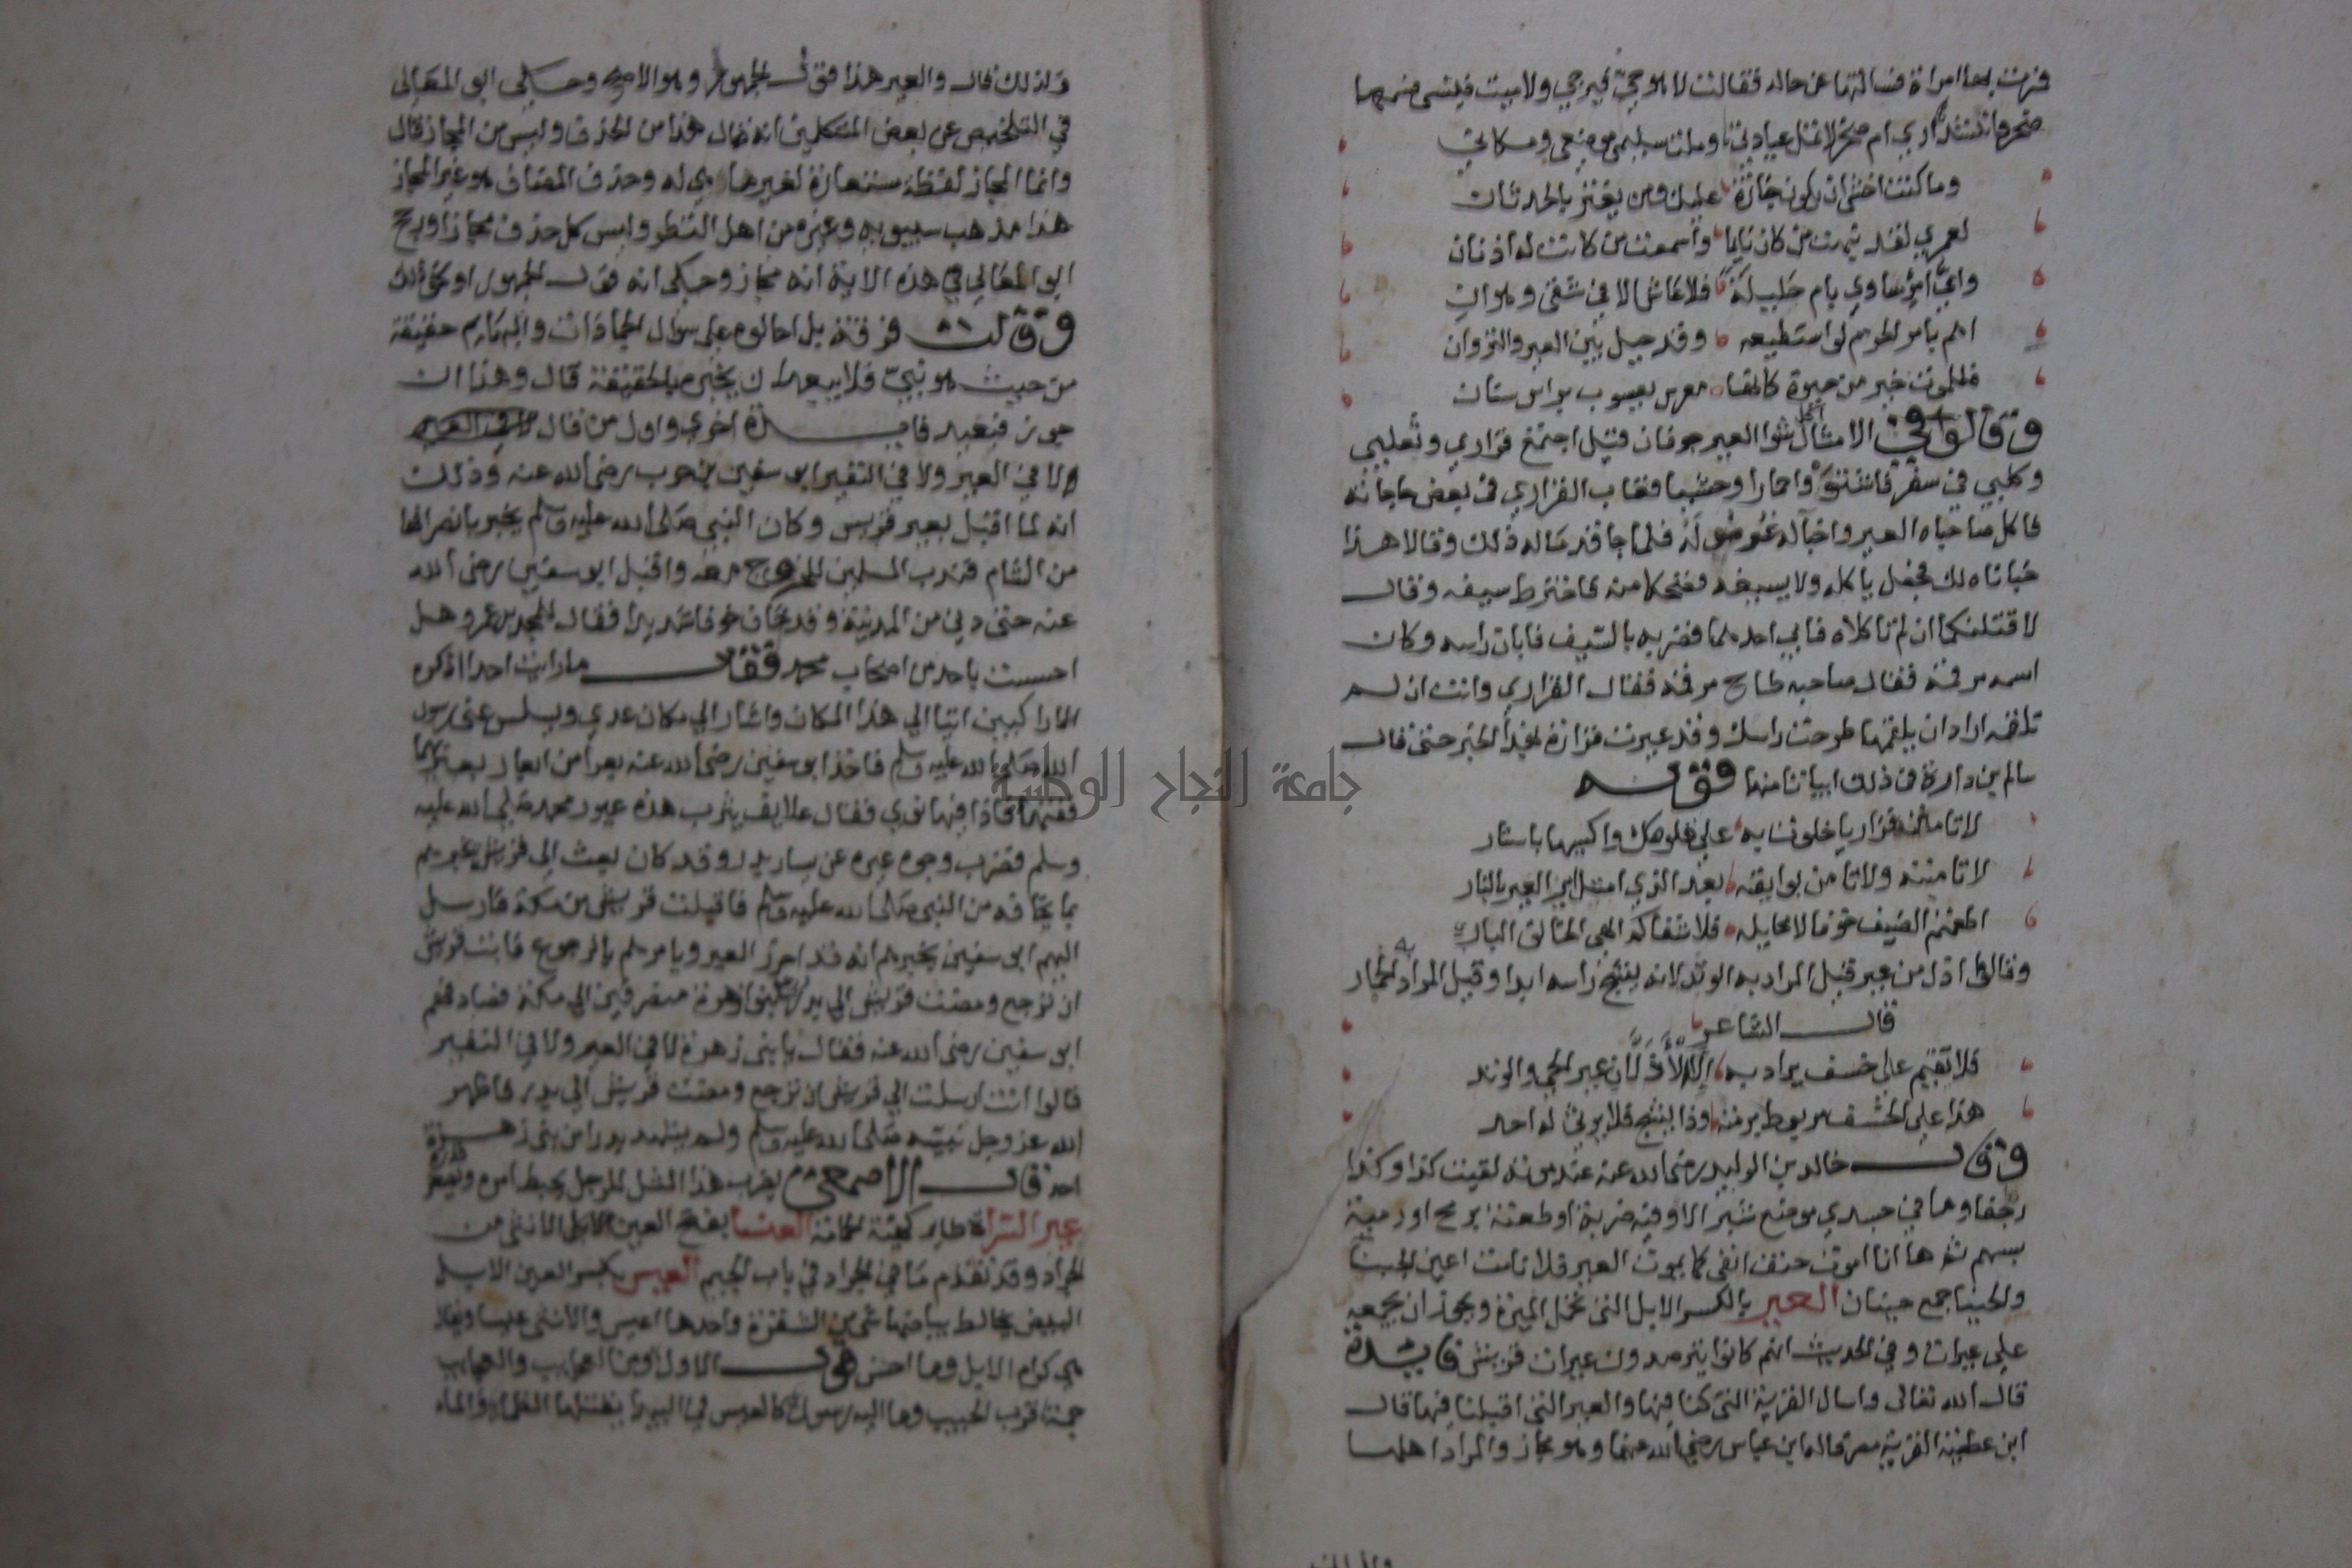 فمرت بها امراة فسالتها عن حاله فقالت لا هو حي فيرجي ولا ميت فينسى فسمعها
صخر وانشد اري ام صخر لا تمل عيادتي وملت سليمى موضعي ومكاني
وما كنت اخشى ان اكون جنازة عليك ومن يغتر بالحدثان
لعمري لقد نبهت من كان نايما واسمعت من كانت له اذنان
واي امرئ ساوي بام حليلة فلا عاش الا في شقى وهوان
اهم بامر الحزم لو استطيعه وقد حيل بين العير والنزوان
فللموت خير من حيوة كانها معرس يعسوب براس سنان
وقالوا في الامثال اكل شوا العير جوفان قيل اجتمع فزاري وتعلبي
وكلبي في سفر فاشتووا حمارا وحشيا فغاب الفزاري في بعض حاجاته
فاكل صاحباه العير واخبآ له غرموله فلما جا قدما له ذلك وقالا هذا
خبأناه لك فجعل ياكله ولا يسيغه فضحكا منه فاخترط سيفه وقال
لاقتلنكما ان لم تاكلاه فابي احدهما فضربه بالسيف فابان راسه وكان
اسمه مرقمة فقال صاحبه طاح مرقمة فقال الفزاري وانت ان لم
تلقمه اراد ان يلقمها طرحت راسك وقد عيرت فزارة بهذا الخبر حتى قال
سالم بن دارة في ذلك ابياتا منها قوله
لا تامنن فزاريا خلوت به على قلوصك واكتبها باسيار
لا تامننه ولا تامن بوايقه بعد الذي امتل اير العير بالنار
اطعمتم الضيف جوفانا مخاتلة فلا سقاكم الهي الخالق الباري
وقالوا اذل من عير قيل المراد به الوتد لانه يشج راسه ابدا وقيل المراد به الحمار
قال الشاعر
فلا يقيم على خسف يراد به الا الاذلان عير الحي والوتد
هذا على الخسف مربوط برمته وذا يشج فلا يرثي له احد
وقال خالد بن الوليد رضي الله عنه عند موته لقيت كذا وكذا
زحفا وما في جسدي موضع شبر الا وفيه ضربة او طعنة برمح او رمية
بسهم ثم ها انا اموت حتف انفي كما يموت العير فلا نامت اعين الجبنا
والجبنا جمع جبان العير بالكسر الابل التي تحمل الميرة ويجوز ان يجمعه
على عيرات وفي الحديث انهم كانوا يترصدون عيرات قريش فايدة
قال الله تعالى واسال القرية التي كنا فيها والعير التي اقبلنا فيها قال
ابن عطية القرية مصر قاله ابن عباس رضي الله عنهما وهو مجاز والمراد اهلها
ولذلك قال والعير هذا قول الجمهور وهو الاصح وحكى ابو المعالى
في التلخيص عن بعض المتكلمين انه قال هذا من الحذف وليس من المجاز قال
وانما المجاز لفظة مستعارة لغيرها هي له وحذف المضاف هو غير المجاز
هذا مذهب سيبويه وغيره من اهل النظر وليس كل حذف مجازا ورجح
ابو المعالي في هذه الاية انه مجاز وحكى انه قول الجمهور او نحو ذلك
وقالت فرقة بل احالوه على سؤال الجمادات والبهايم حقيقة
من حيث هو نبي فلا يبعد ان يخبره بالحقيقة قال وهذا ان
جوز فبعيد فايدة اخري واول من قال
لا في العير ولا في النفير ابو سفين بن حرب رضي الله عنه وذلك
انه لما اقبل بعير قريش وكان النبي صلى الله عليه وسلم يخبر بانصرافها
من الشام فندب المسلمين للخروج معه واقبل ابو سفين رضي الله
عنه حتى دني من المدينة وقد خاف خوفا شديدا فقال لمجدي بن عمرو هل
احسست باحد من اصحاب محمد فقال ما رايت احدا انكره
الا راكبين اتيا الي هذا المكان واشار الي مكان عدي وبسبس عيني رسول
الله صلى الله عليه وسلم فاخذ ابو سفين رضي الله عنه بعرا من ابعار بعيريهما
ففتها فاذا فيها نوي فقال علايف يثرب هذه عيون محمد صلى الله عليه
وسلم فضرب وجوه عيره عن يسار بدر وقد كان بعث الى قريش يخبرهم
بما يخافه من النبي صلى الله عليه وسلم فاقبلت قريش من مكة فارسل
اليهم ابو سفين يخبرهم انه قد احرز العير ويامرهم بالرجوع فابت قريش
ان ترجع ومضت قريش الي بدر بنوا زهرة منصرفين الي مكة فصادفهم
ابو سفين رضي الله عنه فقال يا بني زهرة لا في العير ولا في النفير
قالوا انت ارسلت الي قريش ان ترجع ومضت قريش الي بدر فاظهر
الله عز وجل نبيه صلى الله عليه وسلم ولم يشهد بدرا من بني زهرة
احد قال الاصمعي يضرب هذا المثل للرجل يحط امره ويصغر قدره
عير السراة طاير كهيئة الحمامة العنسا بفتح العين الابل الانثى من
الجراد وقد تقدم ما في الجراد في باب الجيم العيس بكسر العين الابل
البيض يخالط بياضها شي من الشقرة واحدها اعيس والانثى عيسا ويقال
هي كرام الابل وما احسن قول الاول ومن العجايب والعجايب
جمة قرب الحبيب وما اليه رسول كالعيس في البيداء يقتلها الظماء والماء
جامعة النجاح الوطنية